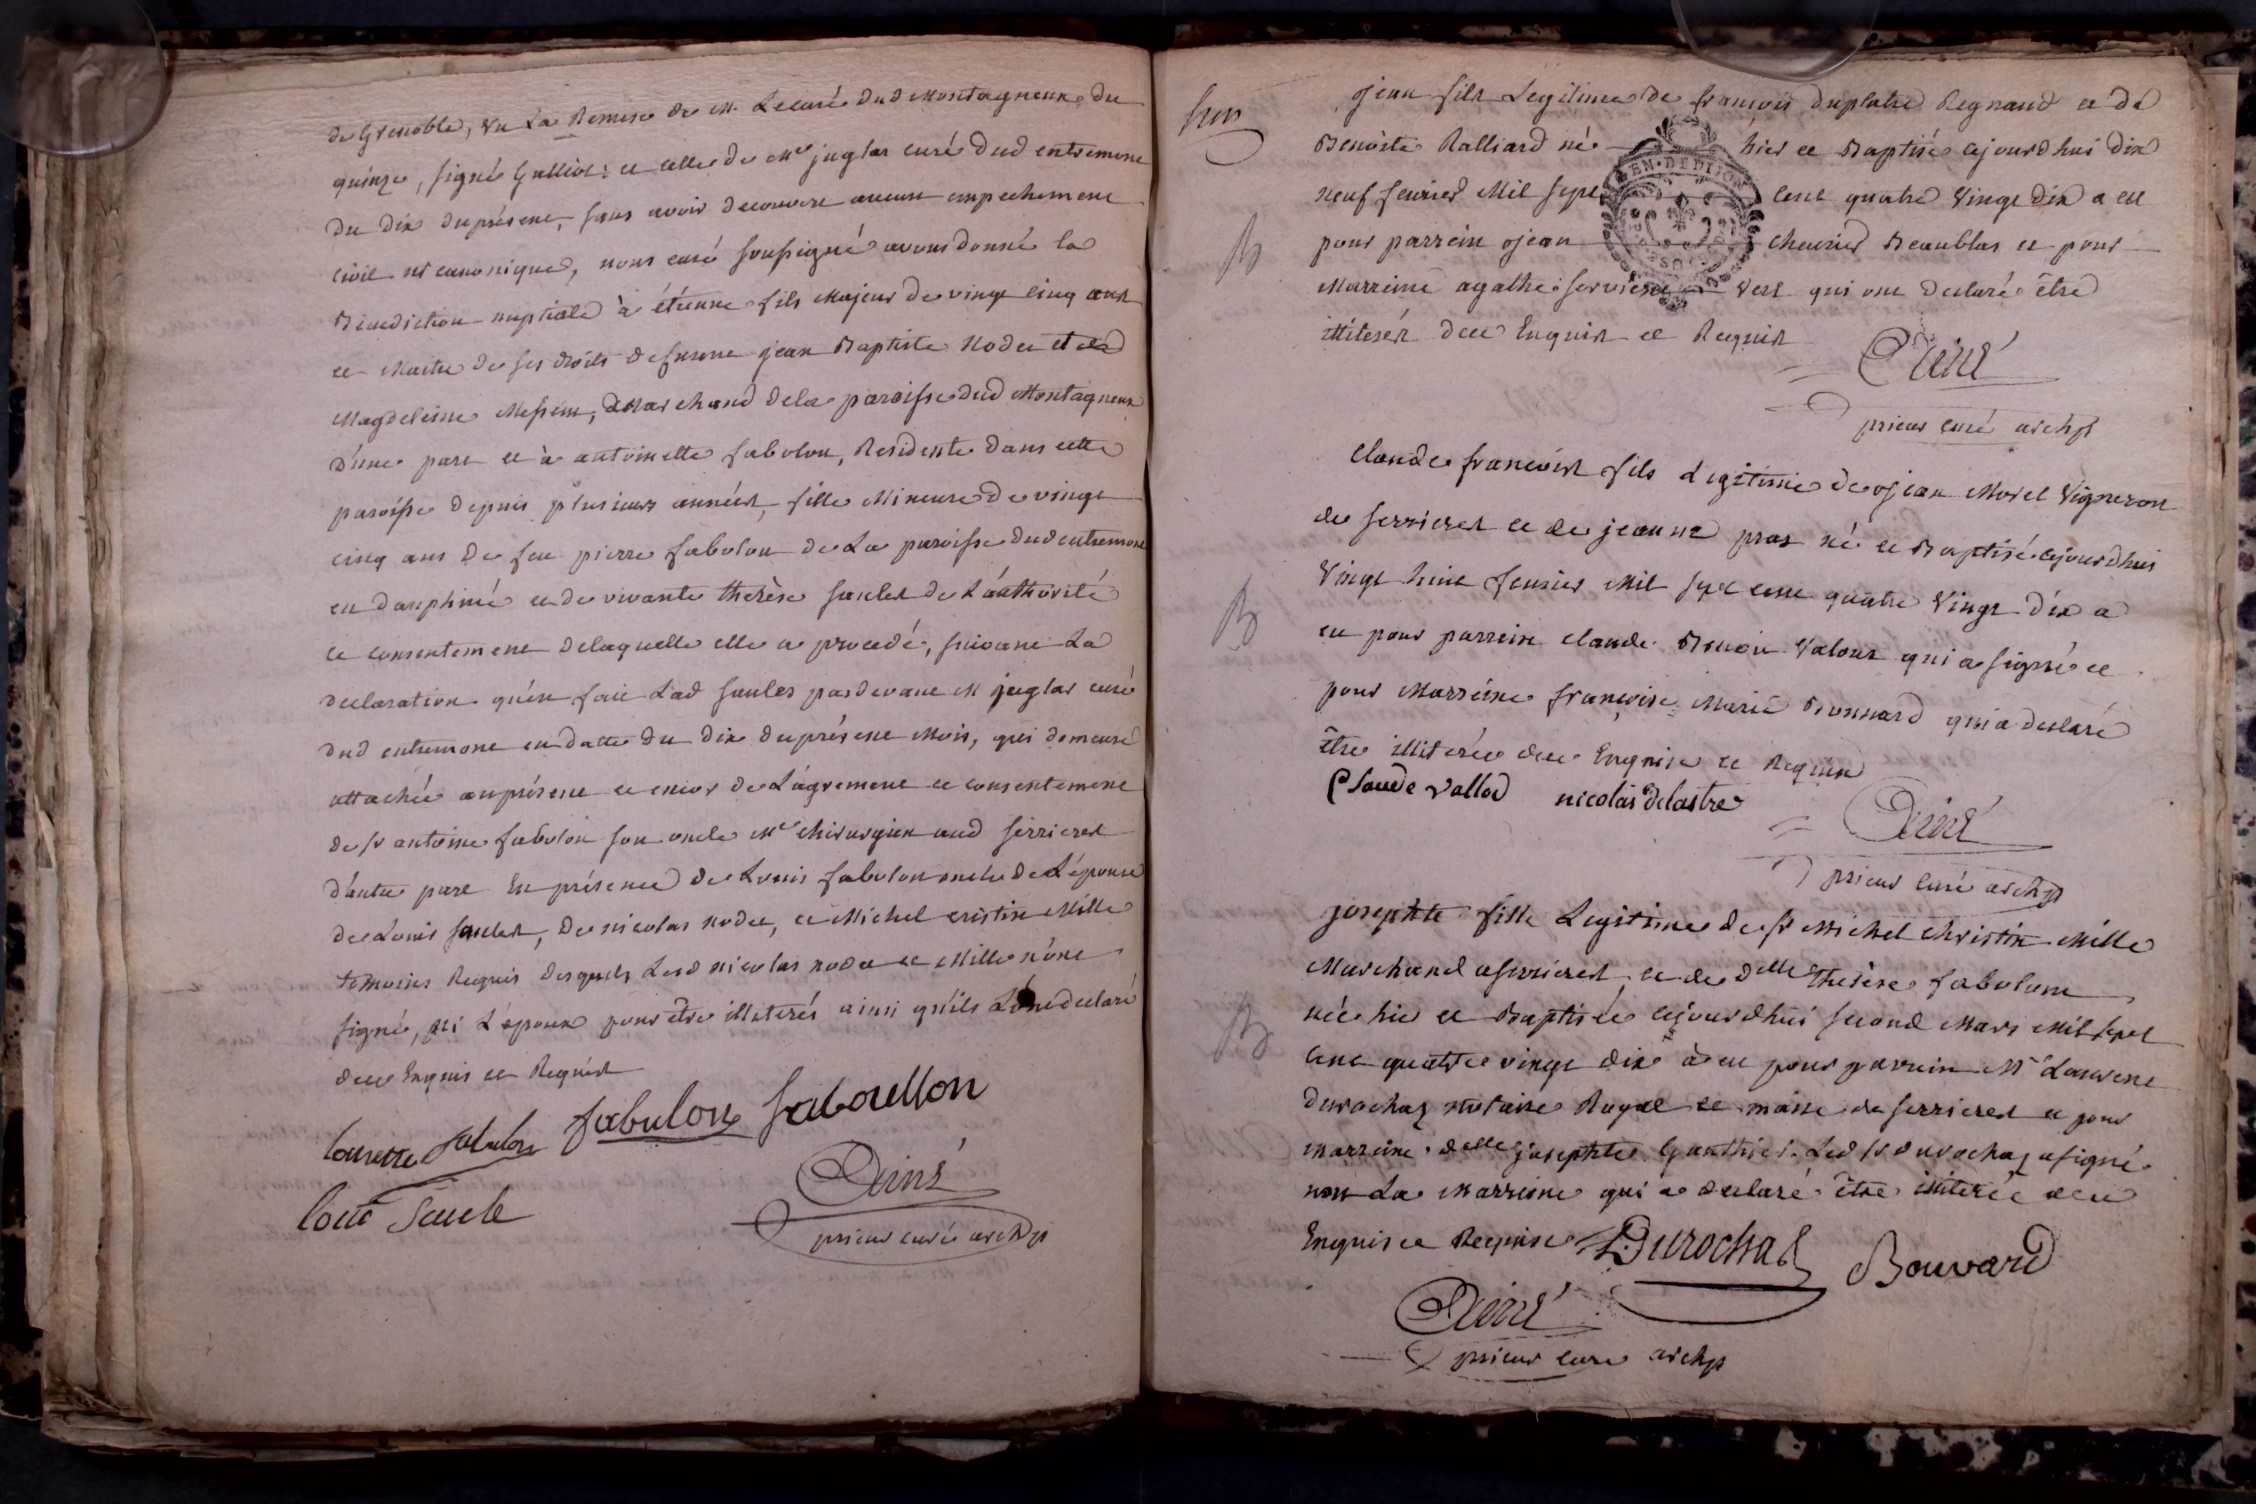 de Grenoble, vu la Remise de M. Lecuré dud Montagneux du
quinze, signé Gulliot: et celle de Mre juglar curé dud entremont
du dix duprésent, sans avoir decouvert aucun empechement
civil ni canonique, nous curé soussigné avons donné la
Benediction nuptiale à étienne fils Majeur de vingt cinq ans
et Maitre de ses droits defunt jean Baptiste Nodet et de
Magdeleine Messein, Marchand dela paroisse dud Montagneux
d'une part et à antoinette fabolon, Residente dans cette
paroisse depuis plusieurs années, fille Mineure de vingt
cinq ans de feu pierre fabolon de La paroisse dud entremont
en dauphiné et de vivante therèse saulet de L'authorité
et consentement delaquelle elle a procedé, suivant La
declaration qu'en fait Lad saulet pardevant M juglar curé
dud entremont en datte du dix duprésent Mois, qui demeure
attachée auprésent et encor de L'agrement et consentement
de sr antoine fabolon son oncle Mre chirurgien aud serrieres
d'autre part En présence de Louis fabolon oncle de L'épouse
de Louis saulet, de nicolas nodet, et Michel cristin Mille
temoins Requis desquels Lesd nicolas nodet et Mille n'ont
signé, ni L'époux pour être illiterés ainsi qu'ils L'ont declaré
de ce Enquis et Requis
fabulon fabulon faboullon
Loui Saule
Diné
prieur curé archip
jean fils Legitime de françois duplatre Regnaud et de
Benoite Ralliard né hier et Baptisé cejourdhui dix
neuf fevrier Mil sept cent quatre vingt dix a eu
pour parrein jean chevrier Beaublas et pour
Marreine agathe servient vert qui ont declaré être
illiterés de ce Enquis et Requis
Diné
prieur curé archip
B
Claude françois fils Legitime de jean Morel Vigneron
de serrieres et de jeanne pras né et Baptisé cejourdhui
Vingt huit fevrier Mil sept cent quatre Vingt dix a
eu pour parrein claude Benoit Valouz qui a signé et
pour Marreine françoise Marie Bonnard qui a declaré
être illiterée de ce Enquise et Requise
Claude vallod nicolas delastre
Diné
prieur curé archip
B
josephte fille Legitime de sr Michel christin Mille
Marchand aserrieres et de delle therèse fabolon
née hier et Baptisée cejourdhui second Mars Mil sept
cent quatre vingt dix à eu pour parrein Mr Laurent
durochaz notaire Royal et maire de serrieres et pour
marreine delle josephte Gauthier. Led sr durochaz a signé
non La Marreine qui a declaré être illiterée de ce
Enquise et Requise Durochaz Bouvard
Diné
prieur curé archip
B